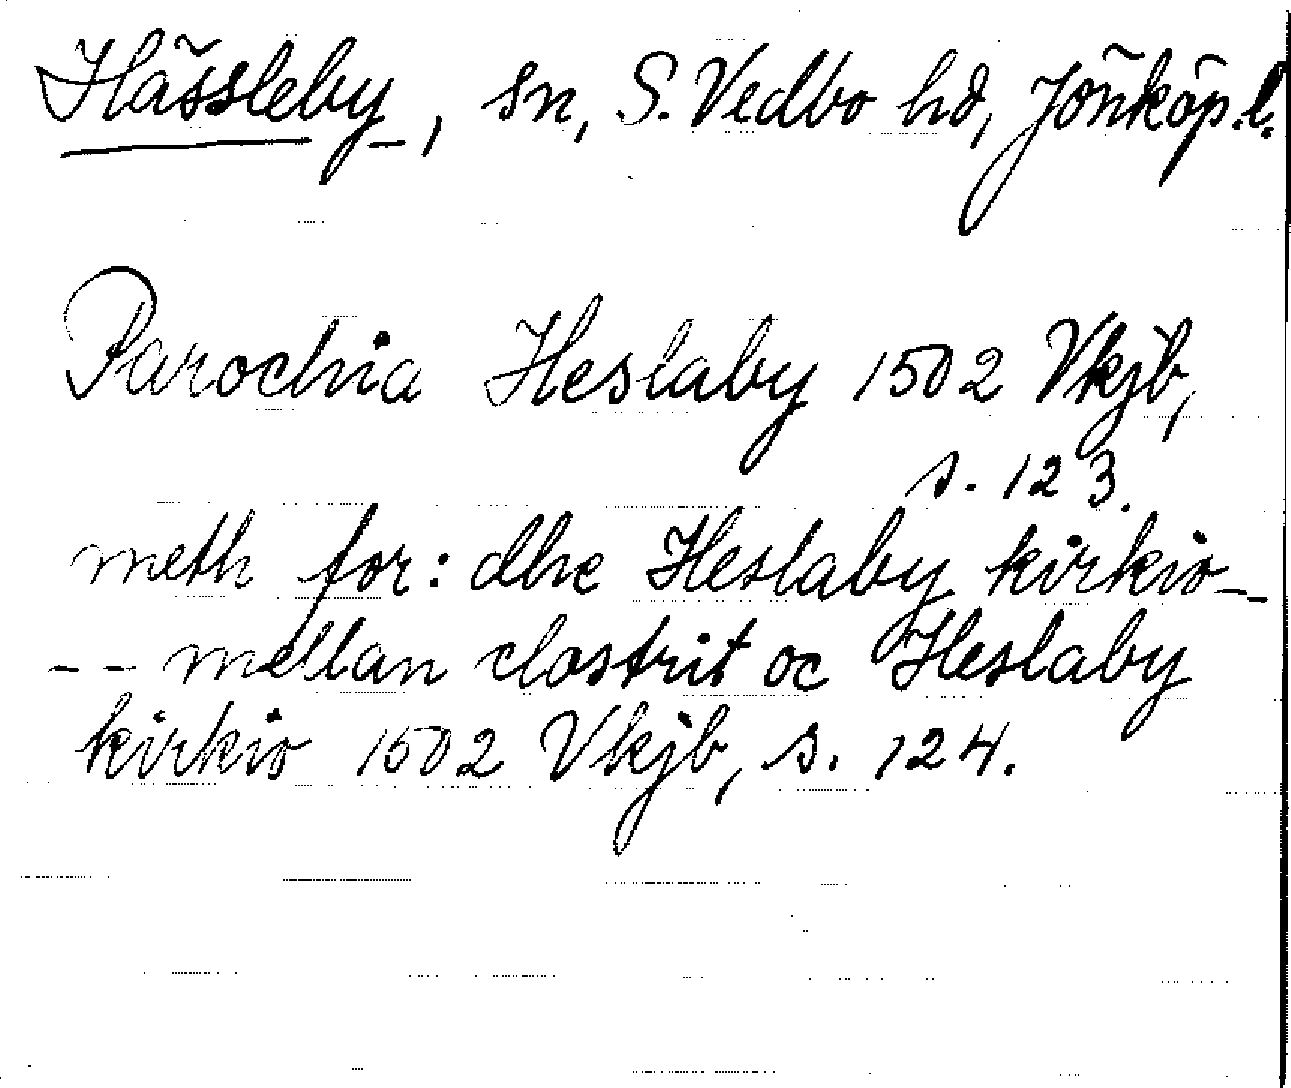 Hässleby, sn, S. Vedbo hd, Jönköp.l.
Parochia Heslaby 1502 Vkjb,
s. 123.
meth for: dhe Heslaby kirkio--
-- mellan clostrit oc Heslaby
kirkio 1502 Vkjb, s. 124.